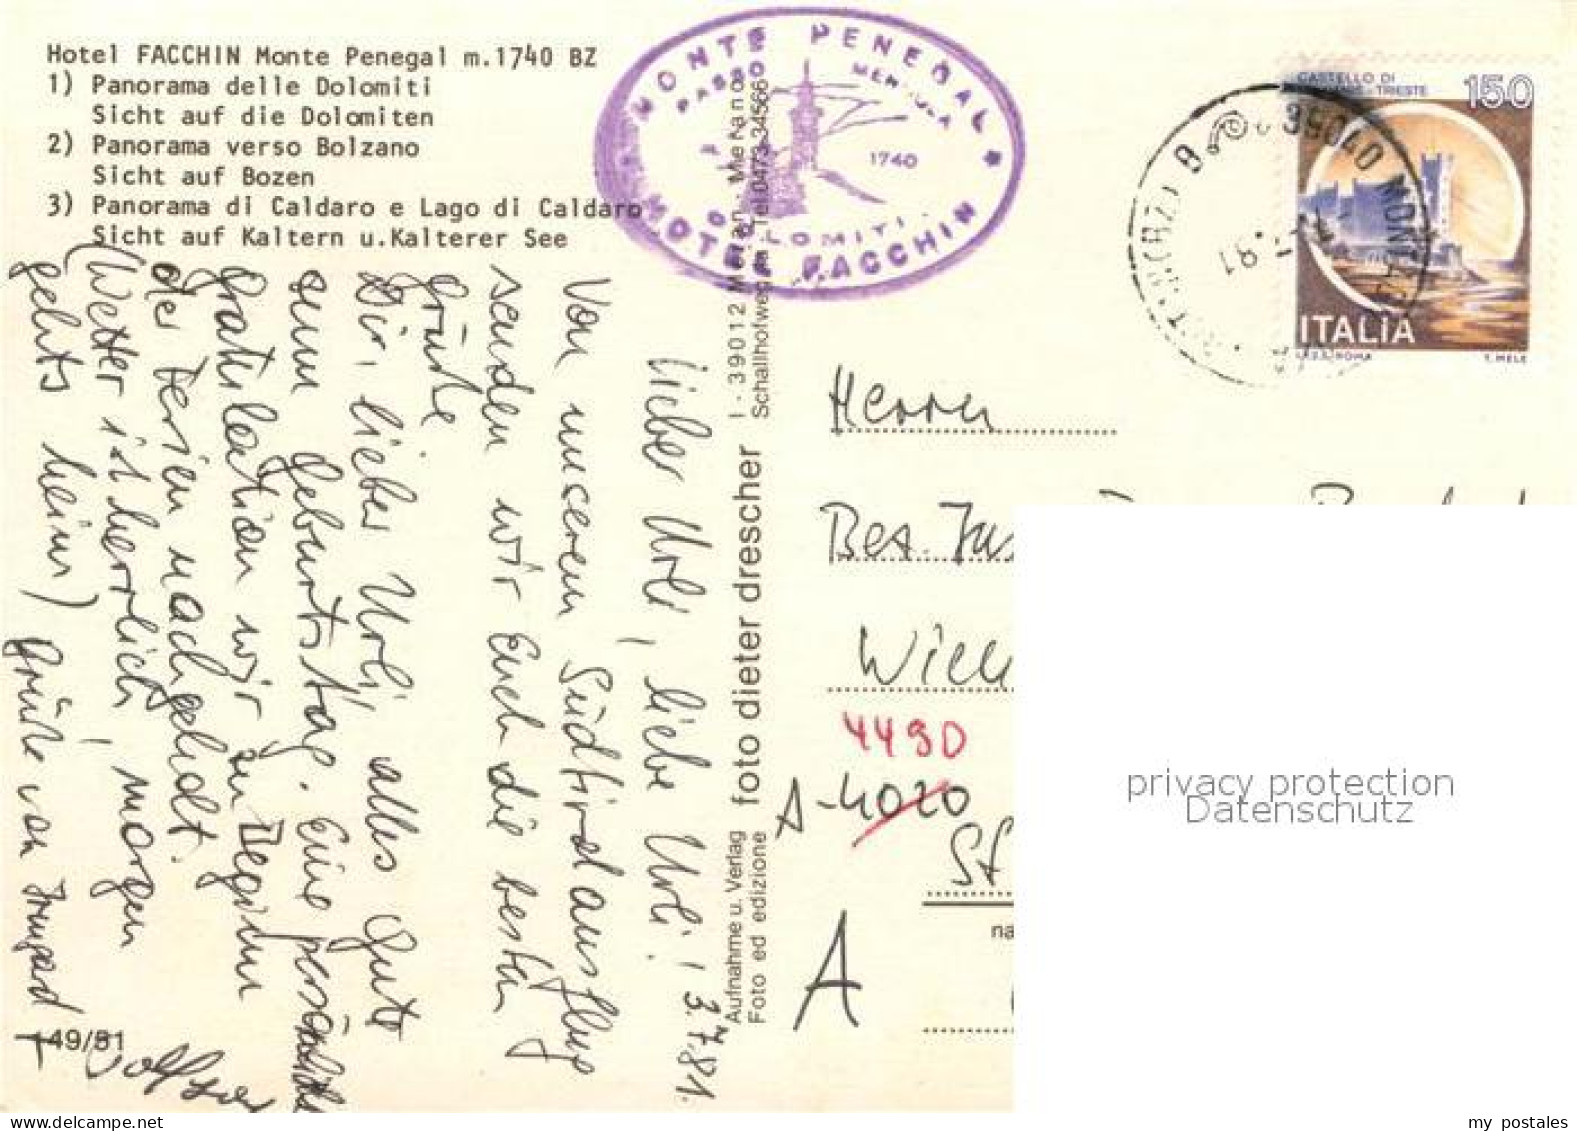 Hotel FACCHIN Monte Penegal m.1740 BZ
1) Panorama delle Dolomiti
Sicht auf die Dolomiten
2) Panorama verso Bolzano
Sicht auf Bozen
3) Panorama di Caldaro e Lago di Caldaro
Sicht auf Kaltern u.Kalterer See
MONTE PENEGAL
PASSO MENDOLA
1740
DOLOMITI
HOTEL FACCHIN
39040 MON
7. 81
CASTELLO DI
TRIESTE
150
ITALIA
I.P.Z.S. ROMA
T. MELE
3.7.81.
Lieber Urli, liebe Urli!
Von unserem Südtirolausflug
senden wir Euch die besten
Grüße
Dir, lieber Urli, alles Gute
zum Geburtstag. Eine persönliche
Gratulation wir zu Beginn
der Ferien nachgeholt.
(Wetter ist herrlich, morgen
gehts heim) Grüße von Irmgard +
49/81
Aufnahme u. Verlag
Foto ed edizione
foto dieter drescher
I - 39012 Meran - Merano
Schallhofweg Tel. 0473-34566
Herrn
Bes.
4490
A-4020
St
A
na
privacy protection
Datenschutz
my postales